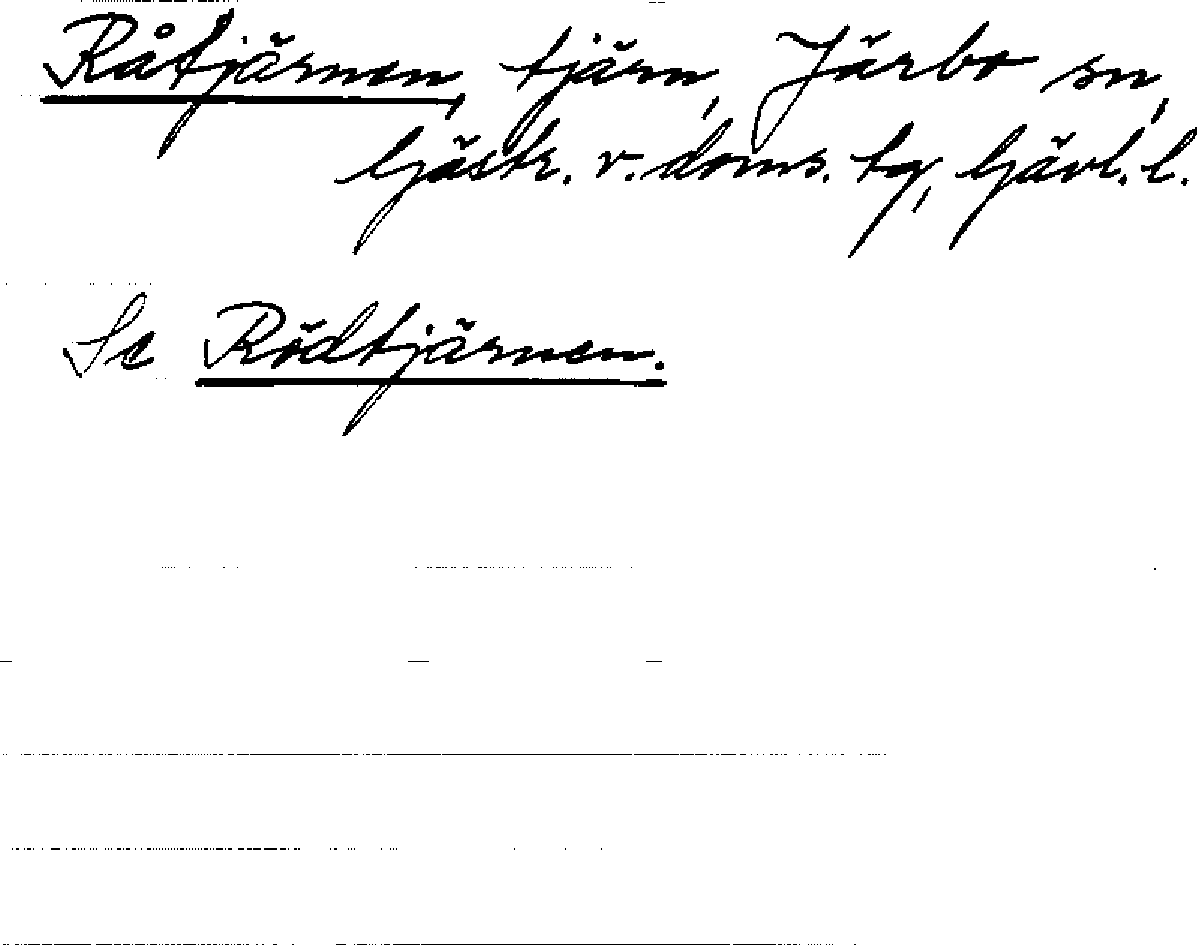 Råtjärnen, tjärn, Järbo sn,
Gästr. v. doms. tg, Gävl. l.
Se Rödtjärnen.